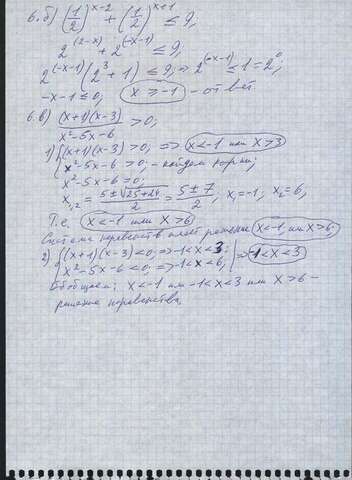 6.б) (1/2)^(x-2) + (1/2)^(x+1) ≤ 9;
2^(2-x) + 2^(-x-1) ≤ 9;
2^(-x-1)(2^3+1) ≤ 9; ⇒ 2^(-x-1) ≤ 1 = 2^0;
-x-1 ≤ 0; x ≥ -1 - ответ
6.в) (x+1)(x-3)/(x²-5x-6) > 0;
1) { (x+1)(x-3) > 0; ⇒ x<-1 или x>3
x²-5x-6 > 0; - найдем корни;
x²-5x-6 > 0;
x1,2 = (5±√(25+24))/2 = (5±7)/2, x₁=-1, x₂=6,
Т.е. x<-1 или x>6
Система неравенств имеет решение x<-1, или x>6;
2) { (x+1)(x-3)<0; ⇒ -1<x<3; ⇒ -1<x<3
x²-5x-6<0; ⇒ -1<x<6;
Обобщаем: x<-1 или -1<x<3 или x>6 -
решение неравенства.